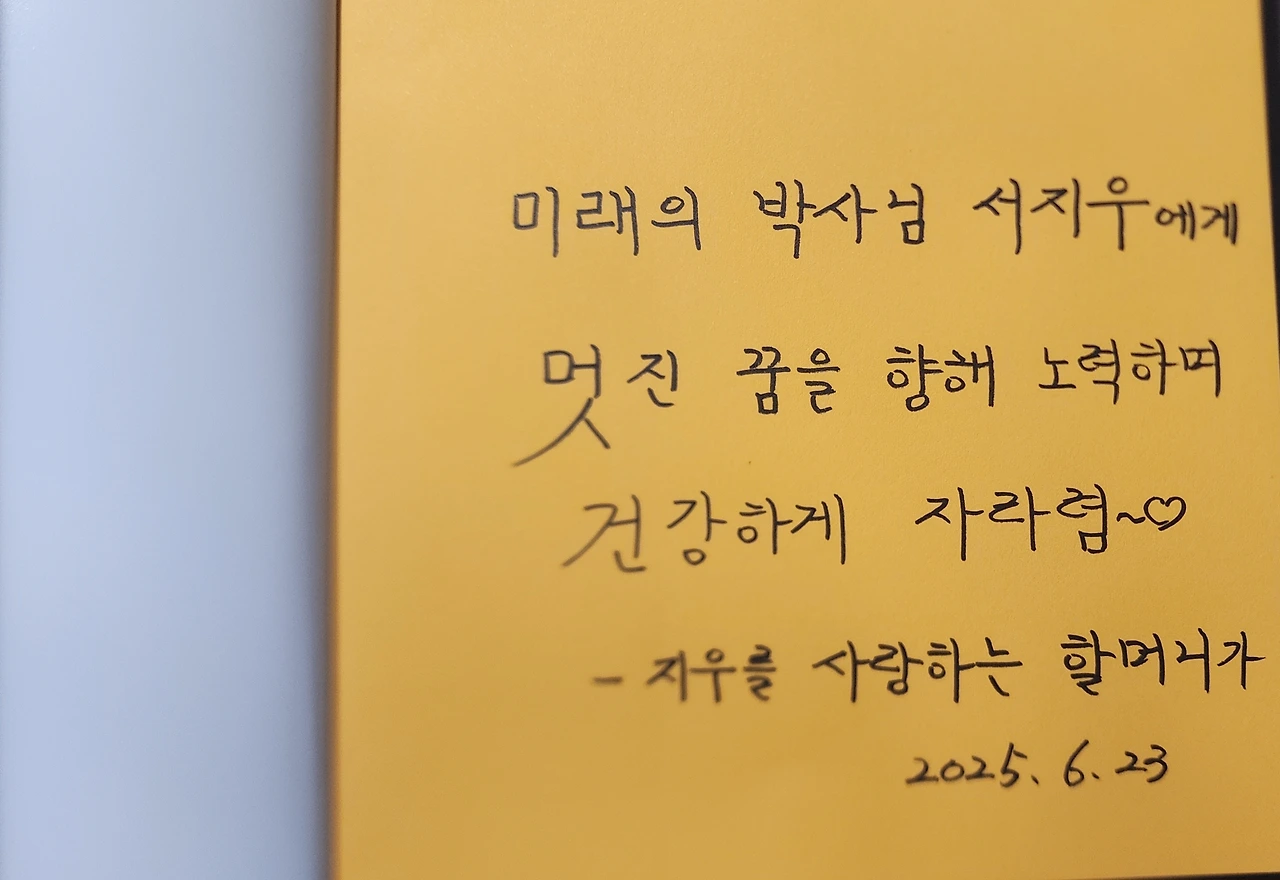 미래의 박사님 서지우에게
멋진 꿈을 향해 노력하며
건강하게 자라렴~♡
- 지우를 사랑하는 할머니가
2025. 6. 23